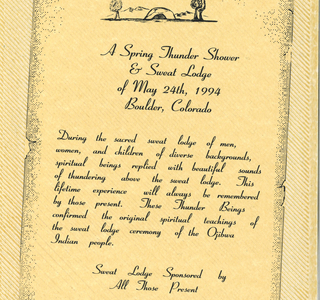 A Spring Thunder Shower
& Sweat Lodge
of May 24th, 1994
Boulder, Colorado
During the sacred sweat lodge of men,
women, and children of diverse backgrounds,
spiritual beings replied with beautiful sounds
of thundering above the sweat lodge. This
lifetime experience will always be remembered
by those present. These Thunder Beings
confirmed the original spiritual teachings of
the sweat lodge ceremony of the Ojibwa
Indian people.
Sweat Lodge Sponsored by
All Those Present